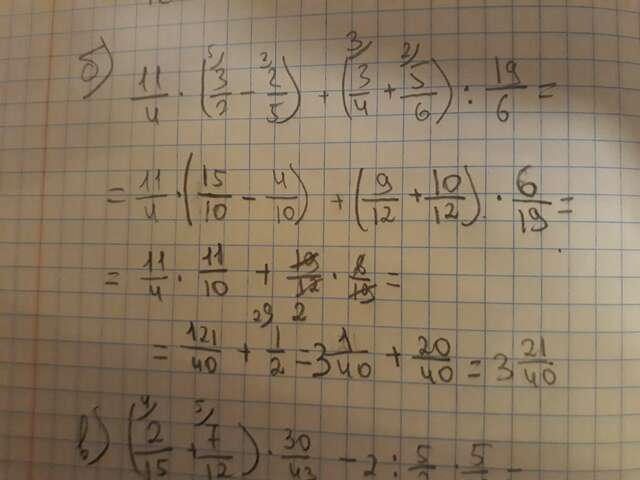 б) 11/4 · (3/2 - 2/5) + (3/4 + 5/6) : 19/6 =
= 11/4 · (15/10 - 4/10) + (9/12 + 10/12) · 6/19 =
= 11/4 · 11/10 + 19/12 · 6/19 =
= 121/40 + 1/2 = 3 1/40 + 20/40 = 3 21/40
в) (2/15 + 7/12) · 30/43 - 2 :